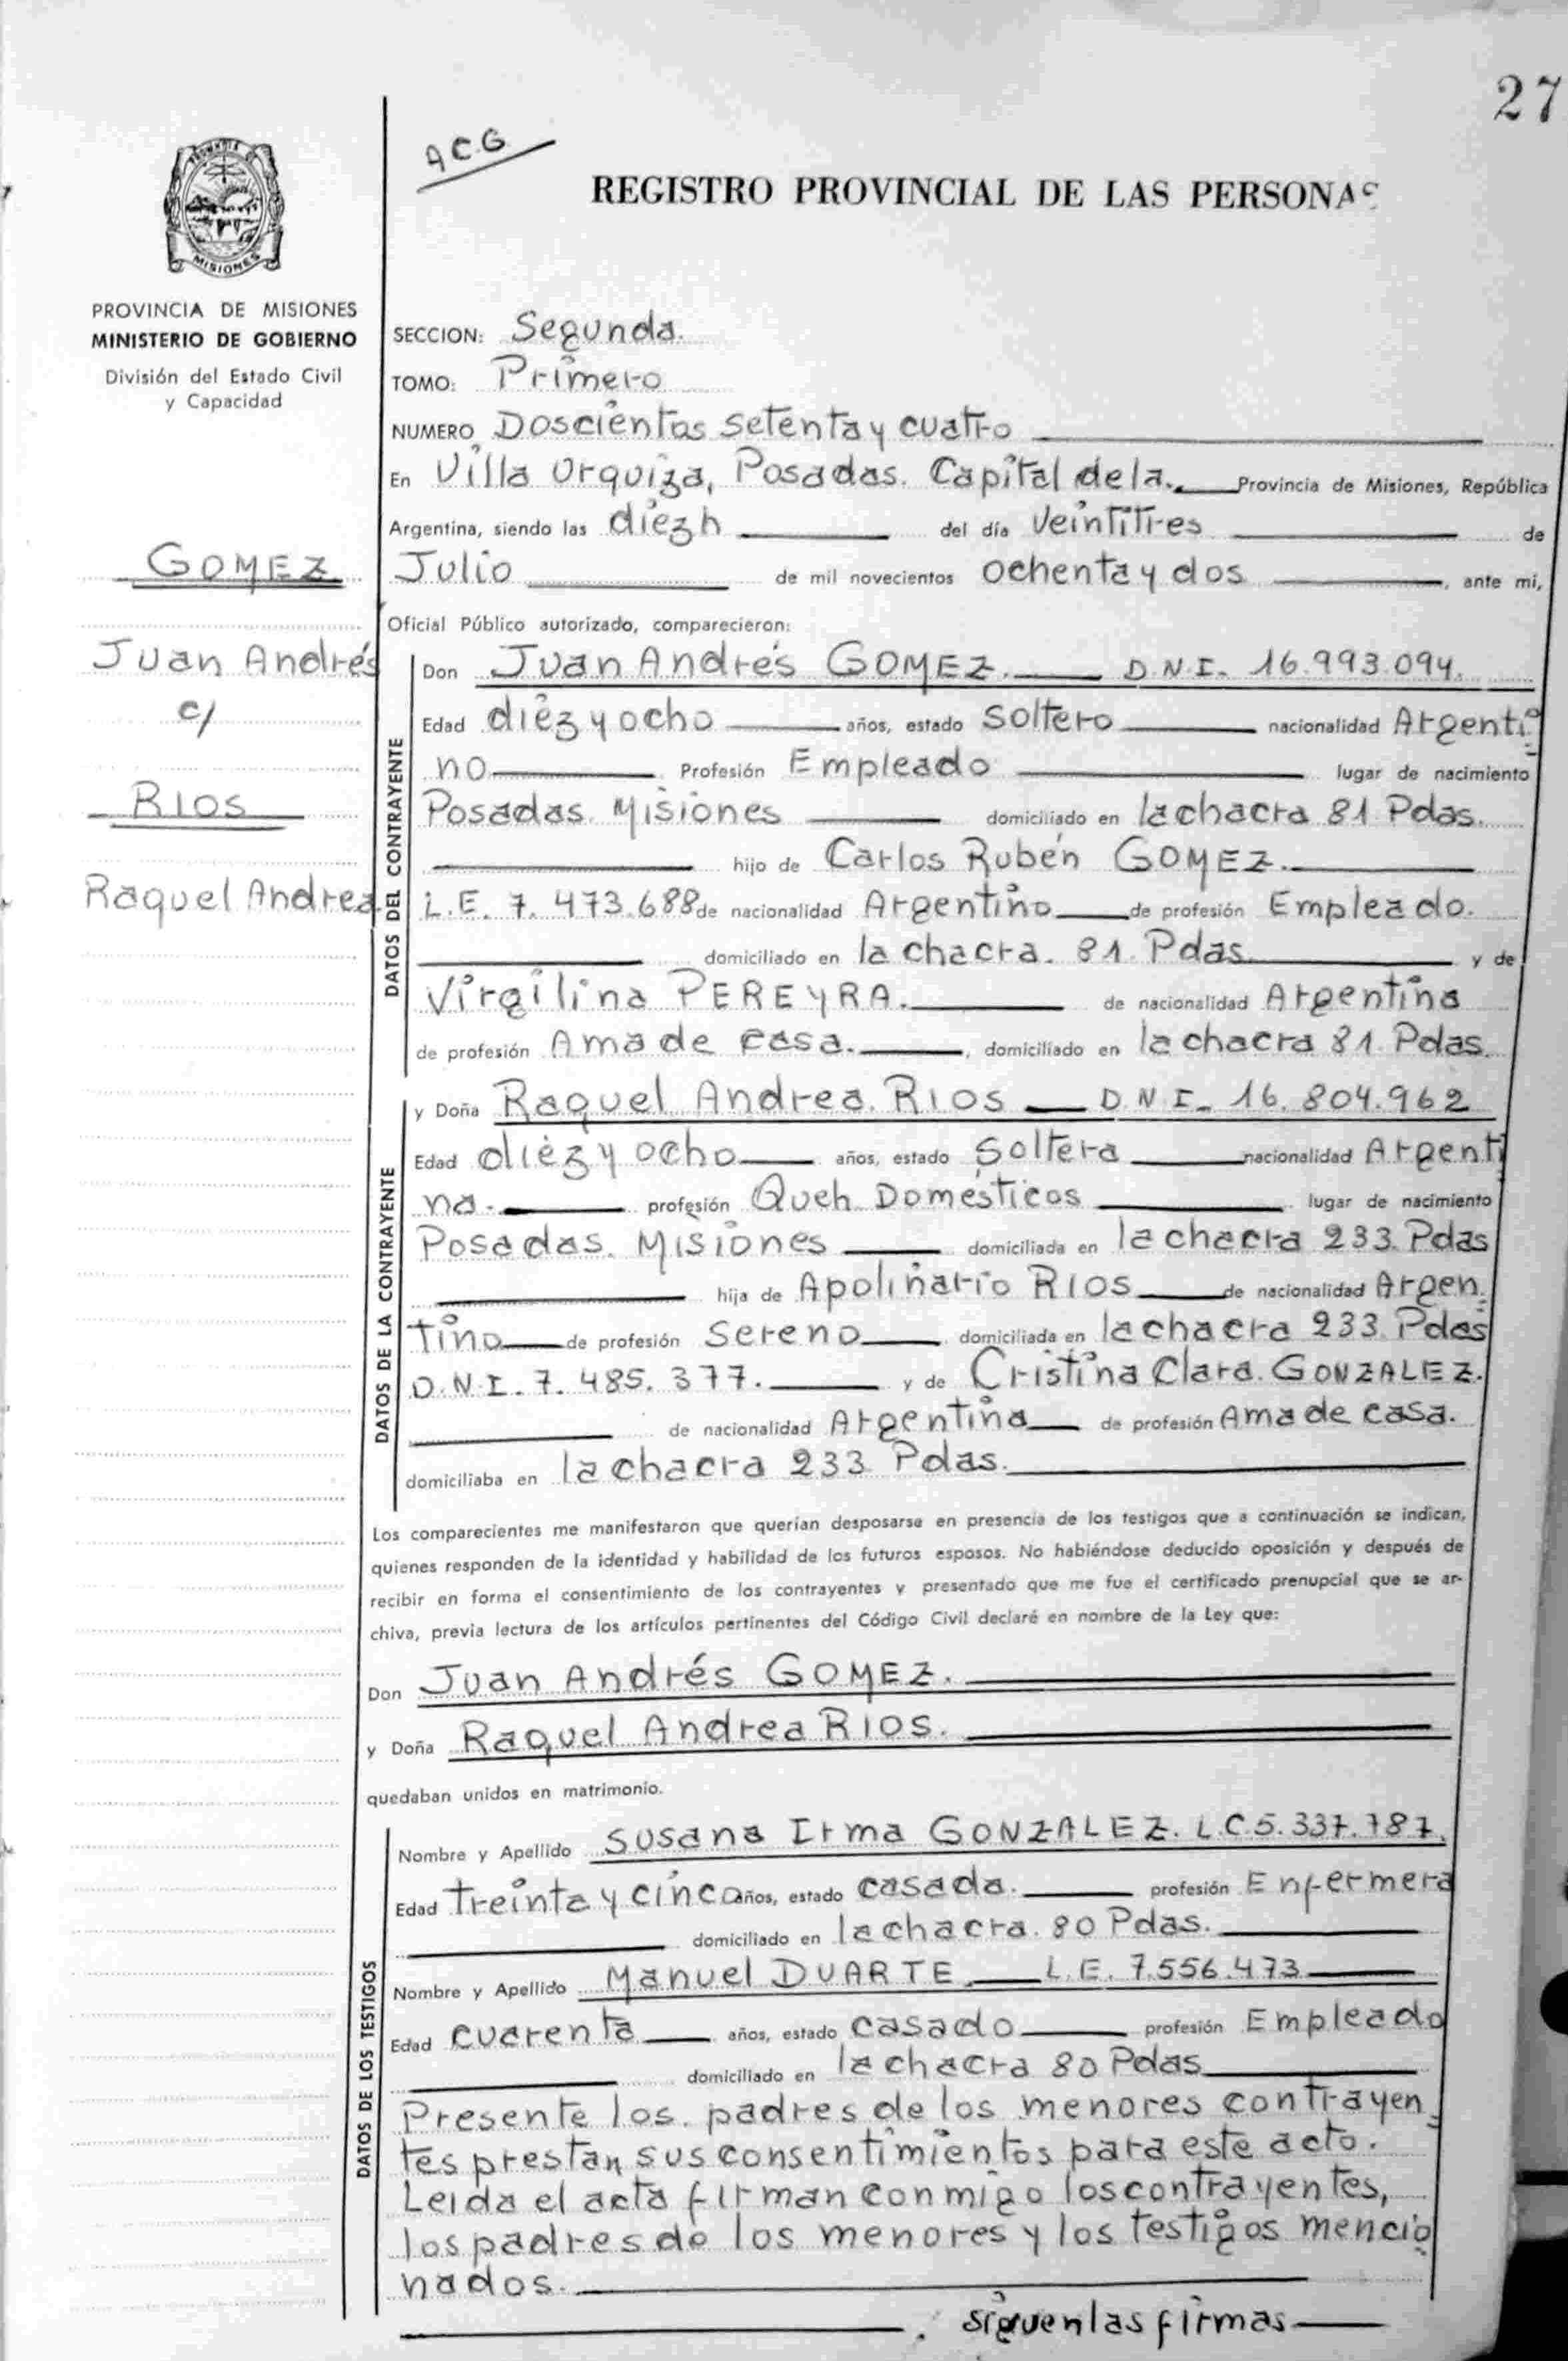 27
A C.G
REGISTRO PROVINCIAL DE LAS PERSONAS
MISIONES
PROVINCIA DE MISIONES
MINISTERIO DE GOBIERNO
División del Estado Civil
y Capacidad
SECCION: Segunda.
TOMO: Primero
NUMERO Doscientos setenta y cuatro
En Villa Urquiza, Posadas. Capital de la. Provincia de Misiones, República
Argentina, siendo las diez h del día veintitres de
Julio de mil novecientos ochenta y dos, ante mi,
Oficial Público autorizado, comparecieron:
GOMEZ
Juan Andrés
c/
RIOS
Raquel Andrea.
DATOS DEL CONTRAYENTE
Don Juan Andrés GOMEZ. D.N.I. 16.993.094.
Edad diez y ocho años, estado soltero nacionalidad Argenti
no Profesión Empleado lugar de nacimiento
Posadas. Misiones domiciliado en la chacra 81 Pdas.
hijo de Carlos Rubén GOMEZ.
L.E. 7.473.688 de nacionalidad Argentino de profesión Empleado.
domiciliado en la chacra. 81. Pdas. y de
Virgilina PEREYRA. de nacionalidad Argentina
de profesión Ama de casa., domiciliado en la chacra 81. Pdas.
DATOS DE LA CONTRAYENTE
y Doña Raquel Andrea. RIOS D.N.I. 16.804.962
Edad diez y ocho años, estado soltera nacionalidad Argenti
na. profesión Queh. Domésticos lugar de nacimiento
Posadas. Misiones domiciliada en la chacra 233. Pdas
hija de Apolinario RIOS de nacionalidad Argen.
tino de profesión Sereno domiciliada en la chacra 233. Pdas
D.N.I. 7.485.377. y de Cristina Clara. GONZALEZ.
de nacionalidad Argentina de profesión Ama de casa.
domiciliaba en la chacra 233 Pdas.
Los comparecientes me manifestaron que querían desposarse en presencia de los testigos que a continuación se indican,
quienes responden de la identidad y habilidad de los futuros esposos. No habiéndose deducido oposición y después de
recibir en forma el consentimiento de los contrayentes y presentado que me fue el certificado prenupcial que se ar-
chiva, previa lectura de los artículos pertinentes del Código Civil declaré en nombre de la Ley que:
Don Juan Andrés GOMEZ.
y Doña Raquel Andrea RIOS.
quedaban unidos en matrimonio.
DATOS DE LOS TESTIGOS
Nombre y Apellido Susana Irma GONZALEZ. L.C. 5.337.787.
Edad treinta y cinco años, estado casada. profesión Enfermera
domiciliado en la chacra. 80 Pdas.
Nombre y Apellido Manuel DUARTE L.E. 7.556.473
Edad cuarenta años, estado casado profesión Empleado
domiciliado en la chacra 80 Pdas
Presente los. padres de los menores contrayen
tes prestan sus consentimientos para este acto.
Leida el acta firman conmigo los contrayentes,
los padres de los menores y los testigos mencio
nados.
siguen las firmas